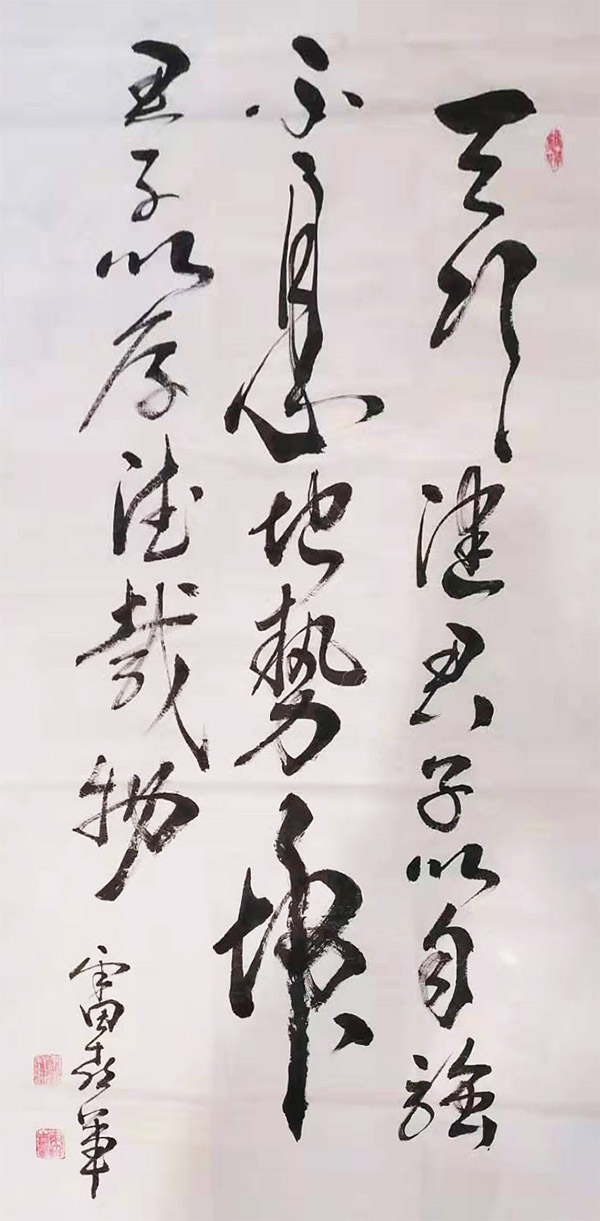 天行健君子以自强
不息地势坤
君子以厚德载物
雷春军